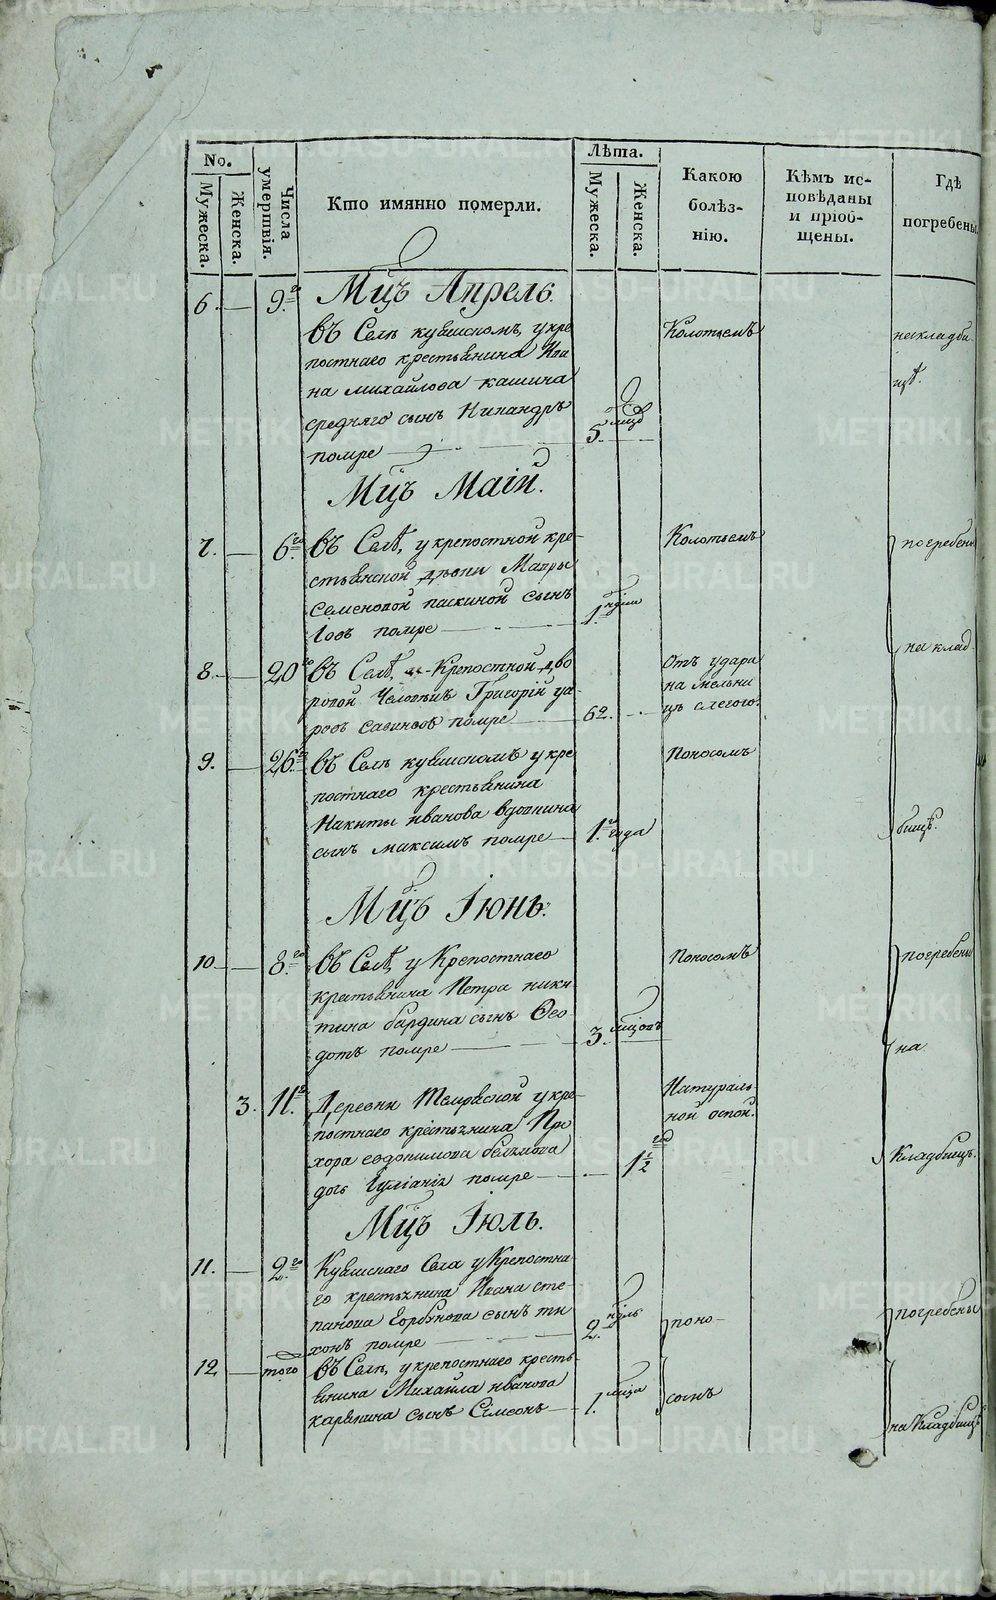 No.
Мужеска.
Женска.
Числа умертвія.
Кто имянно померли.
Лѣта.
Мужеска.
Женска.
Какою болѣз-
нію.
Кѣмъ ис-
повѣданы
и пріоб-
щены.
Гдѣ
погребены.
Мцъ Апрель.
6. — 9.го
въ Селѣ кувшскомъ, у кре
постнаго крестьянина Ива
на михайлова кашина
средняго сынъ Никандръ
помре
5. мцъ
Колотьемъ
на кладби
щѣ.
Мцъ Маій.
7. — 6.го
въ Селѣ, у крепостной кре-
стьянской дѣвки Мавры
Семеновой паскиной сынъ
Іовъ помре
1. ндѣли
Колотьемъ
погребены
8. — 20го
въ Селѣ, Крепостной дво
ровой Человѣкъ Григорій
савиновъ помре
62.
Отъ удара
на мельни
цѣ слегою.
на клад
9. — 26.го
въ Селѣ кувшскомъ у кре
постнаго крестьянина
Никиты иванова вдовкина
сынъ максимъ помре
1.го года
Поносомъ
бищѣ.
Мцъ Іюнь.
10 — 8.го
въ Селѣ, у Крепостнаго
крестьянина Петра ники
тина бардина сынъ Ѳео
дотъ помре
3. мцовъ
Поносомъ
погребены
на
3. 11.го
Деревни у кре-
постнаго крестьянина Про
хора евдокимова
дочь Іуліанія помре
1 1/2 год
Натураль-
ной оспой.
Кладбищѣ.
Мцъ Іюль.
11. — 2.го
Кувшскаго Села у Крепостна-
го крестьянина Ивана сте-
панова Горбунова сынъ ти
хонъ помре
2. ндѣль
поно-
погребены
12 — того
въ Селѣ, у крепостнаго кресть-
янина Михайла иванова
карякина сынъ Сімеонъ
1. мцъ
сомъ
на Кладбищѣ
METRIKI.GASO-URAL.RU